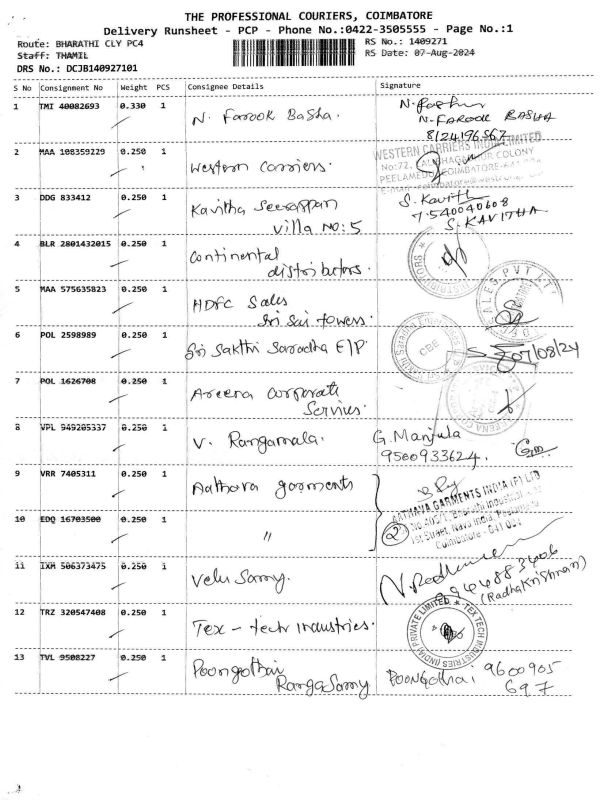 THE PROFESSIONAL COURIERS, COIMBATORE
Delivery Runsheet - PCP - Phone No.:0422-3505555 - Page No.:1
Route: BHARATHI CLY PC4
RS No.: 1409271
Staff: THAMIL
RS Date: 07-Aug-2024
DRS No.: DCJB140927101
S No Consignment No Weight PCS Consignee Details Signature
1 TMI 40082693 0.330 1 N. Farook Basha.
N-FAROOK BASHA
8124196567
2 MAA 108359229 0.250 1 Western Carriers.
WESTERN CARRIERS INDIA LIMITED
No:72, COLONY
PEELAMEDU, COIMBATORE-641
3 DDG 833412 0.250 1 Kavitha Seerappan
Villa NO: 5
S. Kavith
7540040608
S. KAVITHA
4 BLR 2801432015 0.250 1 Continental
distributors.
DISTRIBUTORS
5 MAA 575635823 0.250 1 HDFC Sales
Sri Sai towers.
SALES PVT LTD
6 POL 2598989 0.250 1 Sri Sakthi Saradha E/P.
CBE
07/08/24
7 POL 1626708 0.250 1 Areena Corporate
Services.
8 VPL 949205337 0.250 1 V. Rangamala.
G. Manjula
9500933624.
9 VRR 7405311 0.250 1 Aathava garments
AATHAVA GARMENTS INDIA (P) LTD
No Bharathi Industrial
1st Street, Nava India,
Coimbatore - 641 004
2
10 EDQ 16703500 0.250 1 "
11 IXM 506373475 0.250 1 Velu Samy.
9446883406
(Radhakrishnan)
12 TRZ 320547408 0.250 1 Tex - tech industries.
TEXTECH INDUSTRIES (INDIA) PRIVATE LIMITED
13 TVL 9508227 0.250 1 Poongothai
RangaSamy
Poongothai 9600905
697